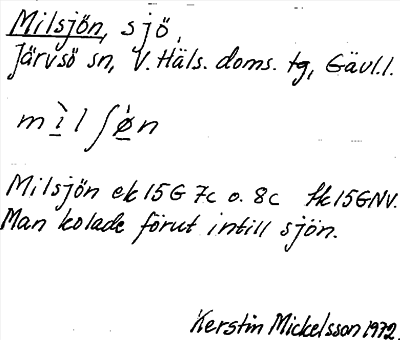 Milsjön, sjö,
Järvsö sn, V. Häls. doms. tg, Gävl.l.
mìlʃø̀n
Milsjön ek 15G 7c o. 8c fk 15GNV.
Man kolade förut intill sjön.
Kerstin Mickelsson 1972.